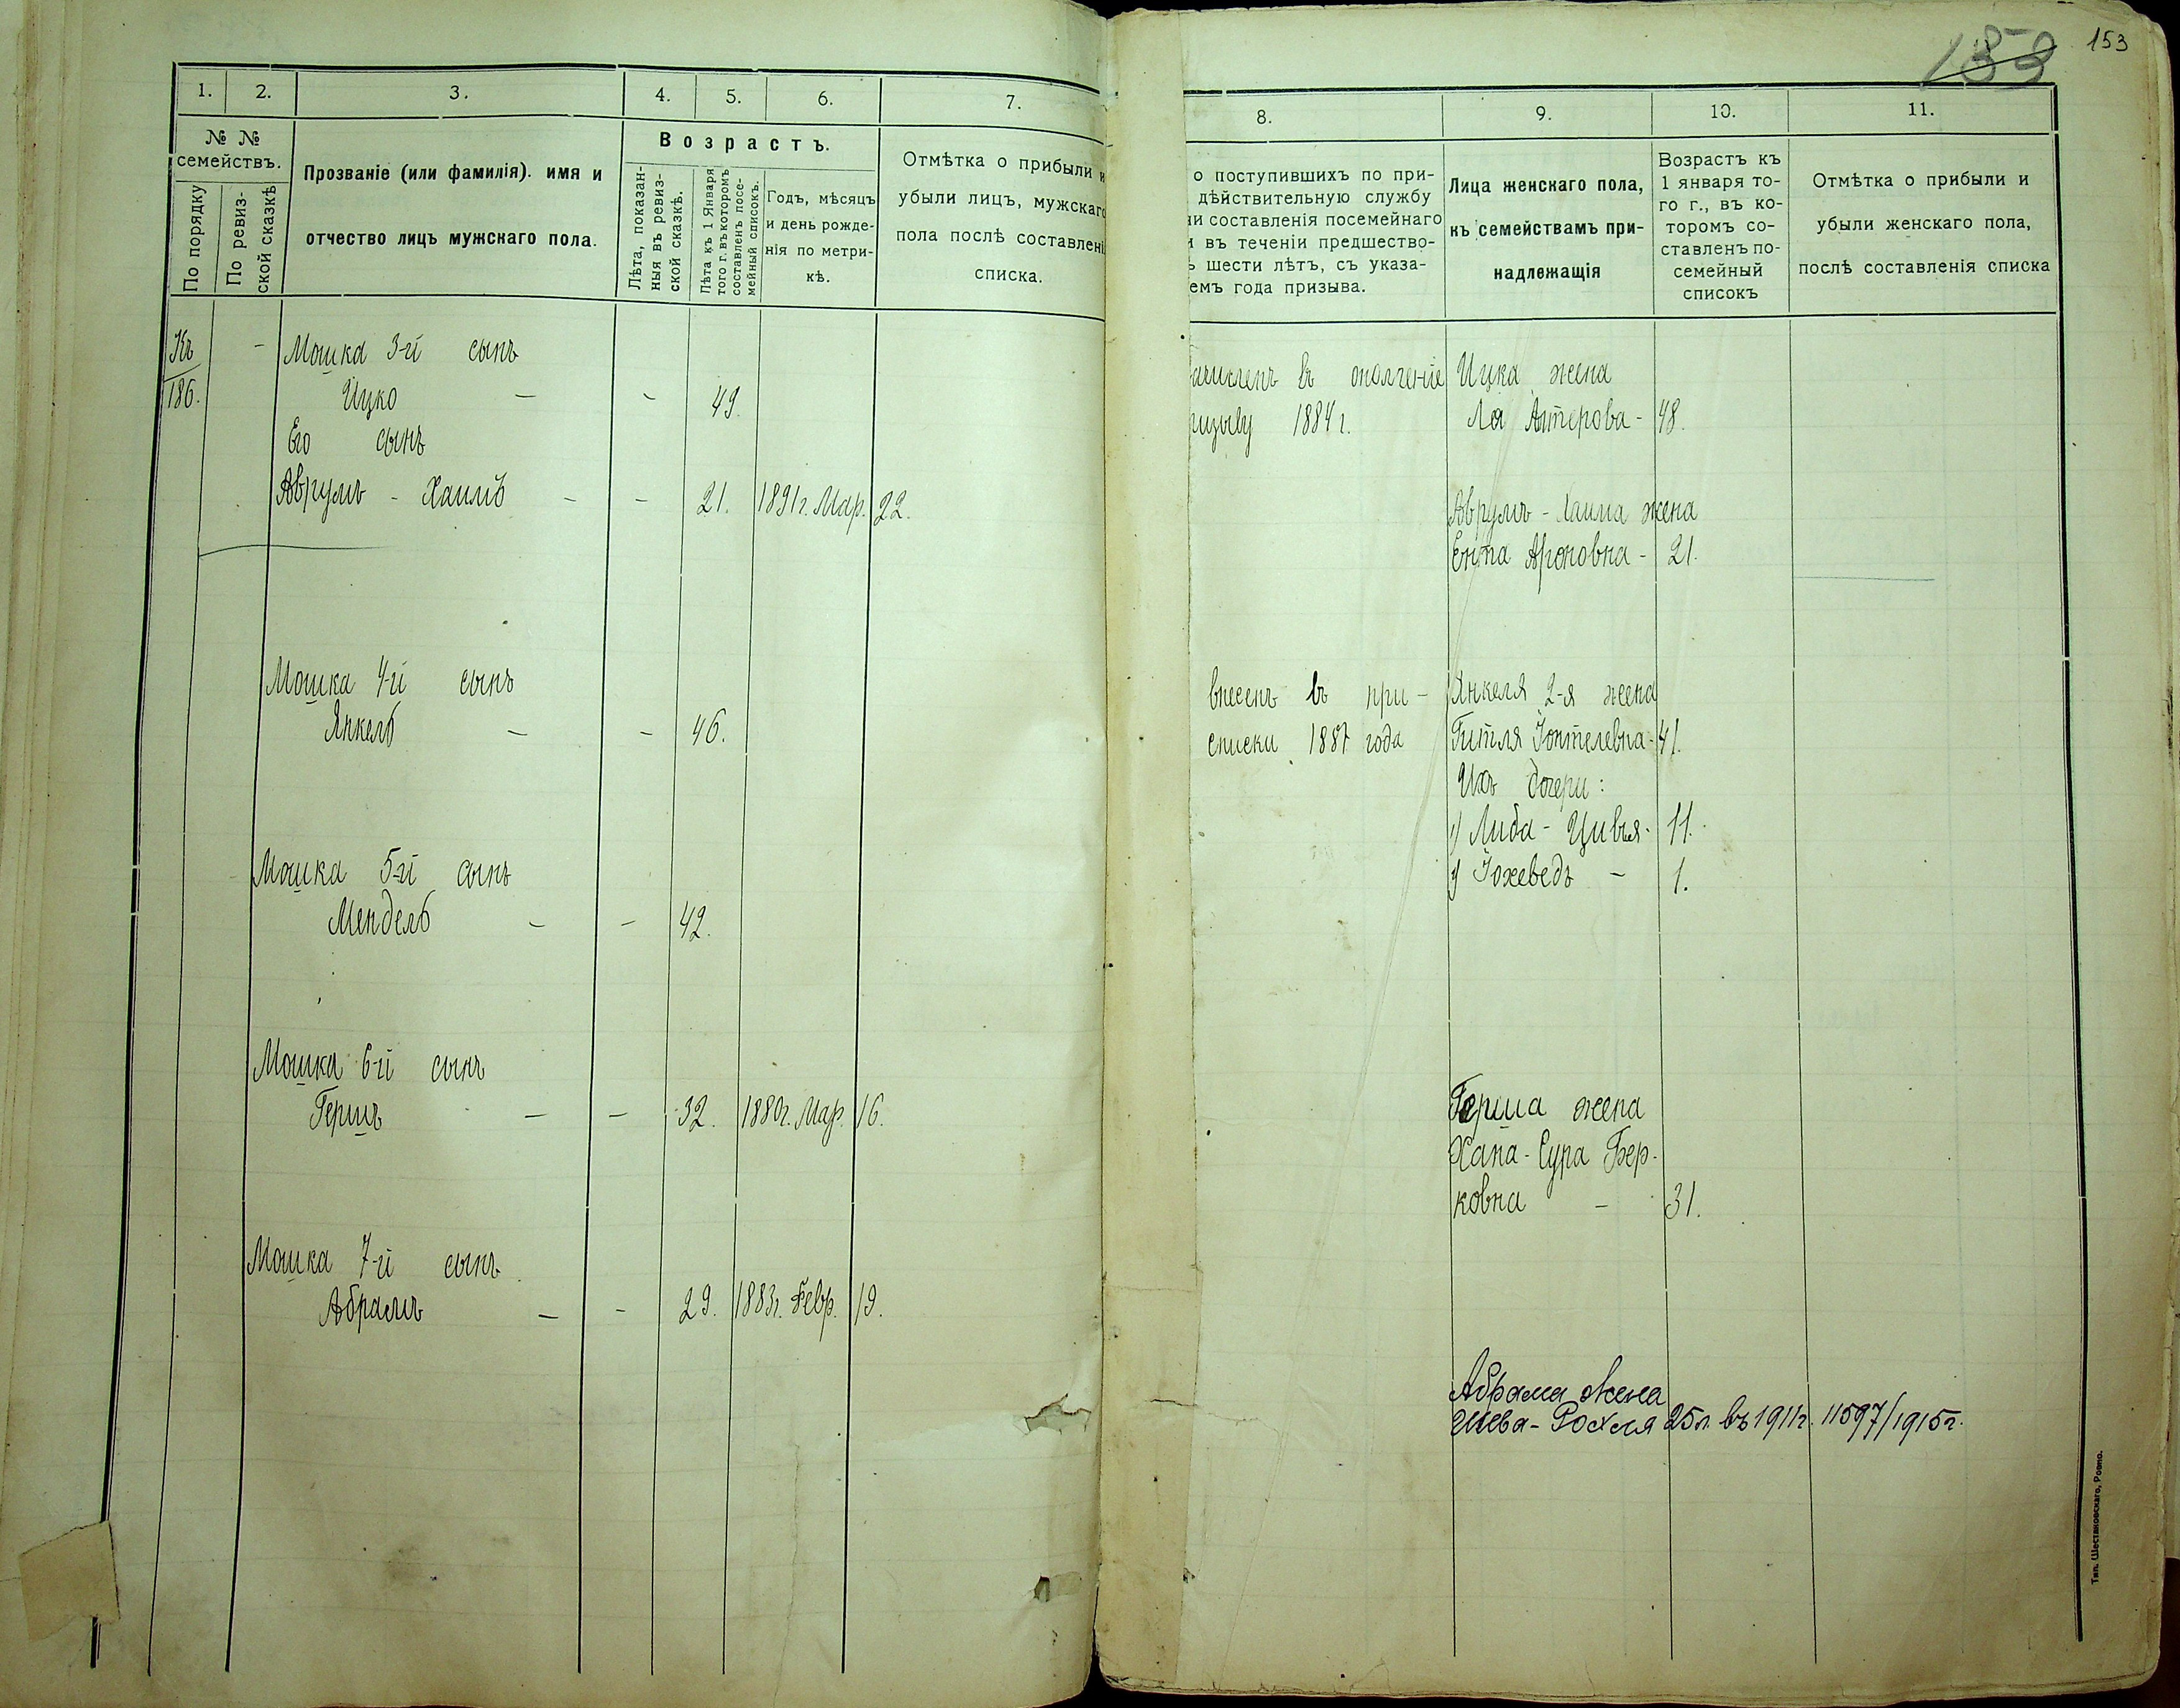 153
153
1. 2. 3. 4. 5. 6. 7.
№ №
семействъ.
По порядку
По ревиз-
ской сказкѣ
Прозваніе (или фамилія). имя и
отчество лицъ мужскаго пола.
Возрастъ.
Лѣта, показан-
ныя въ ревиз-
ской сказкѣ.
Лѣта къ 1 Января
того г. въ которомъ
составленъ посе-
мейный списокъ.
Годъ, мѣсяцъ
и день рожде-
нія по метри-
кѣ.
Отмѣтка о прибыли и
убыли лицъ, мужскаго
пола послѣ составлені
списка.
Къ
186.
- Мошка 3-й сынъ
Ицко - - 49.
Его сынъ
Аврумъ - Хаимъ - - 21. 1891г. Мар. 22.
Мошка 4-й сынъ
Янкель - - 46.
Мошка 5-й сынъ
Мендель - - 42.
Мошка 6-й сынъ
Гершъ - - 32. 1880г. Мар. 16.
Мошка 7-й сынъ
Абрамъ - - 29. 1883г. Февр. 19.
8. 9. 10. 11.
о поступившихъ по при-
дѣйствительную службу
ни составленія посемейнаго
и въ теченіи предшество-
ь шести лѣтъ, съ указа-
емъ года призыва.
Лица женскаго пола,
къ семействамъ при-
надлежащія
Возрастъ къ
1 января то-
го г., въ ко-
торомъ со-
ставленъ по-
семейный
списокъ
Отмѣтка о прибыли и
убыли женскаго пола,
послѣ составленія списка
ачисленъ въ ополченіе Ицка жена
ризыву 1884 г. Лея - 48.
Аврумъ - Хаима жена
Ента Ароновна - 21.
внесенъ въ при- Янкеля 2-я жена
списки 1887 года Гитля - 41.
Ихъ дочери:
1) Либа - Цивья - 11.
2) Іохеведъ - 1.
Герша жена
Хана - Сура Бер-
ковна - 31.
Абрама жена
Шева - Рохля 25л. въ 1911г. 11597/1915г.
Тип. Шестаковскаго, Ровно.